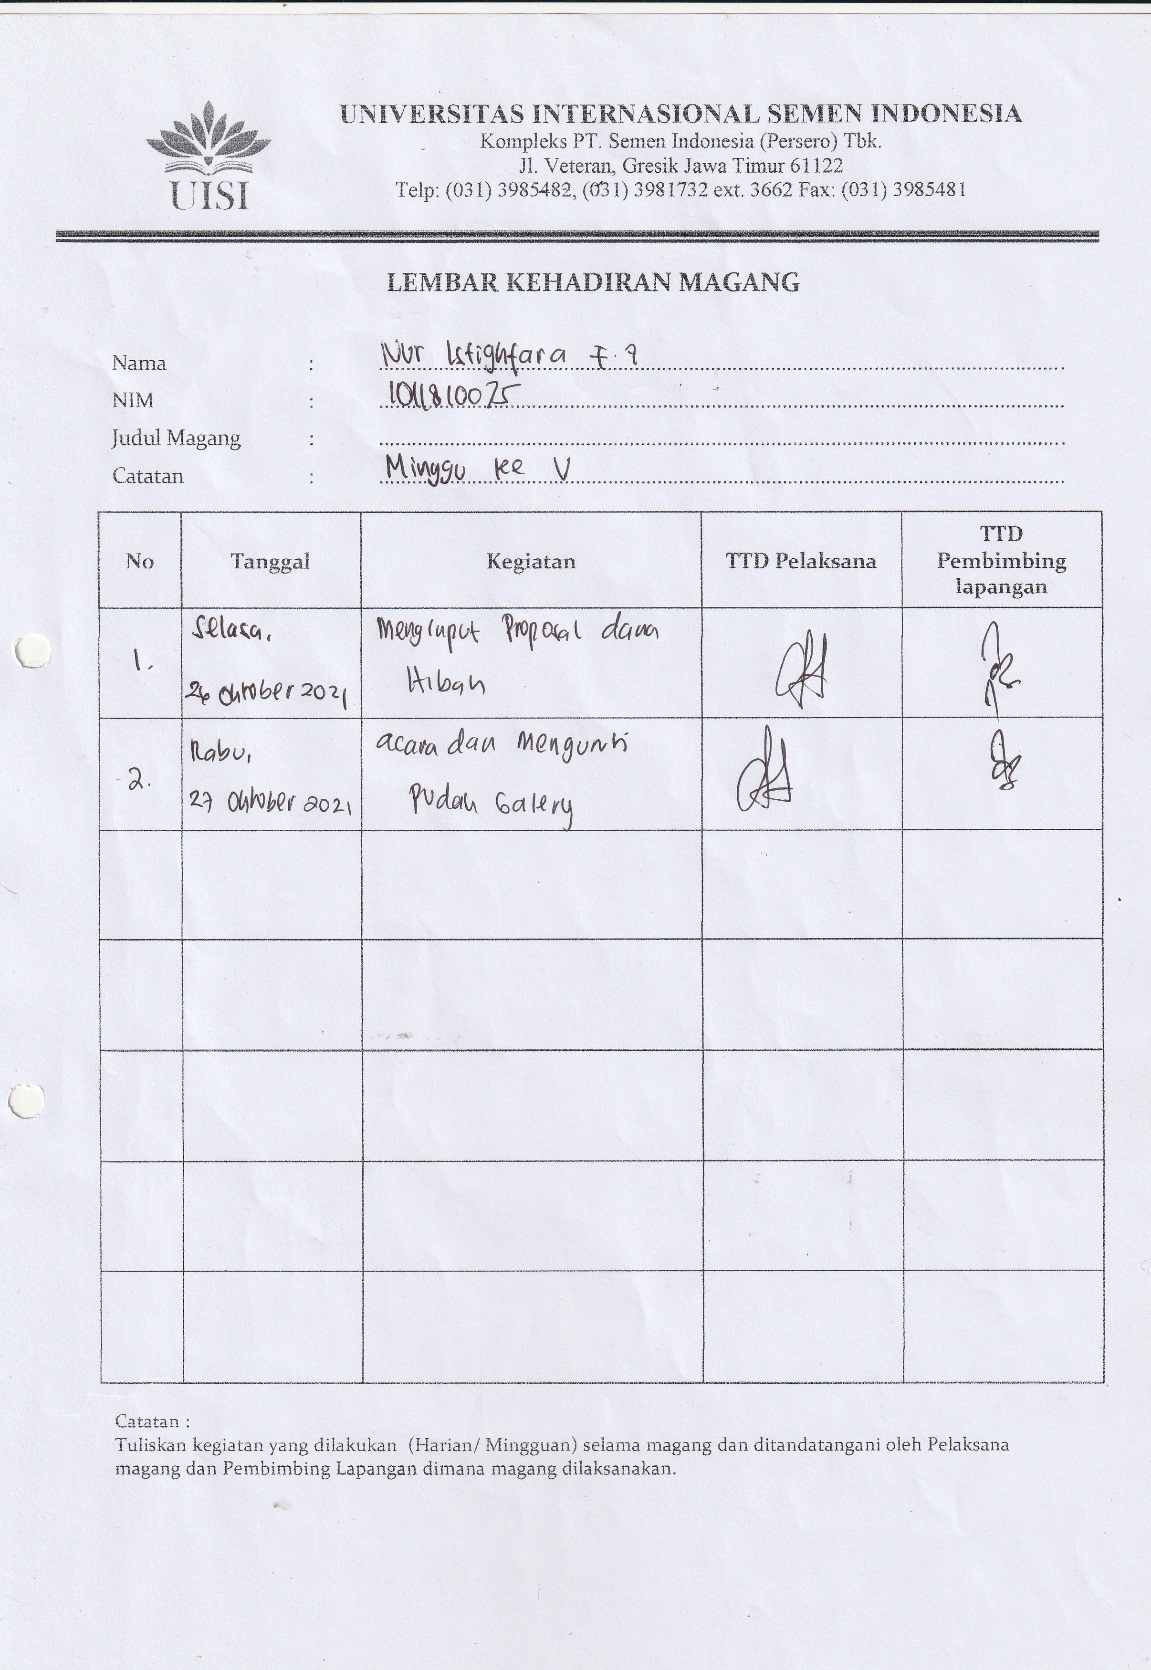 UNIVERSITAS INTERNASIONAL SEMEN INDONESIA
Kompleks PT. Semen Indonesia (Persero) Tbk.
Jl. Veteran, Gresik Jawa Timur 61122
Telp: (031) 3985482, (031) 3981732 ext. 3662 Fax: (031) 3985481
UISI
LEMBAR KEHADIRAN MAGANG
Nama : Nur Istighfara F.
NIM : 1011810075
Judul Magang :
Catatan : Minggu ke V
No Tanggal Kegiatan TTD Pelaksana TTD Pembimbing lapangan
1. Selasa, 26 Oktober 2021 Menginput Proposal dana Hibah
2. Rabu, 27 Oktober 2021 acara dan Mengunti Pudak Galery
Catatan :
Tuliskan kegiatan yang dilakukan (Harian/ Mingguan) selama magang dan ditandatangani oleh Pelaksana
magang dan Pembimbing Lapangan dimana magang dilaksanakan.